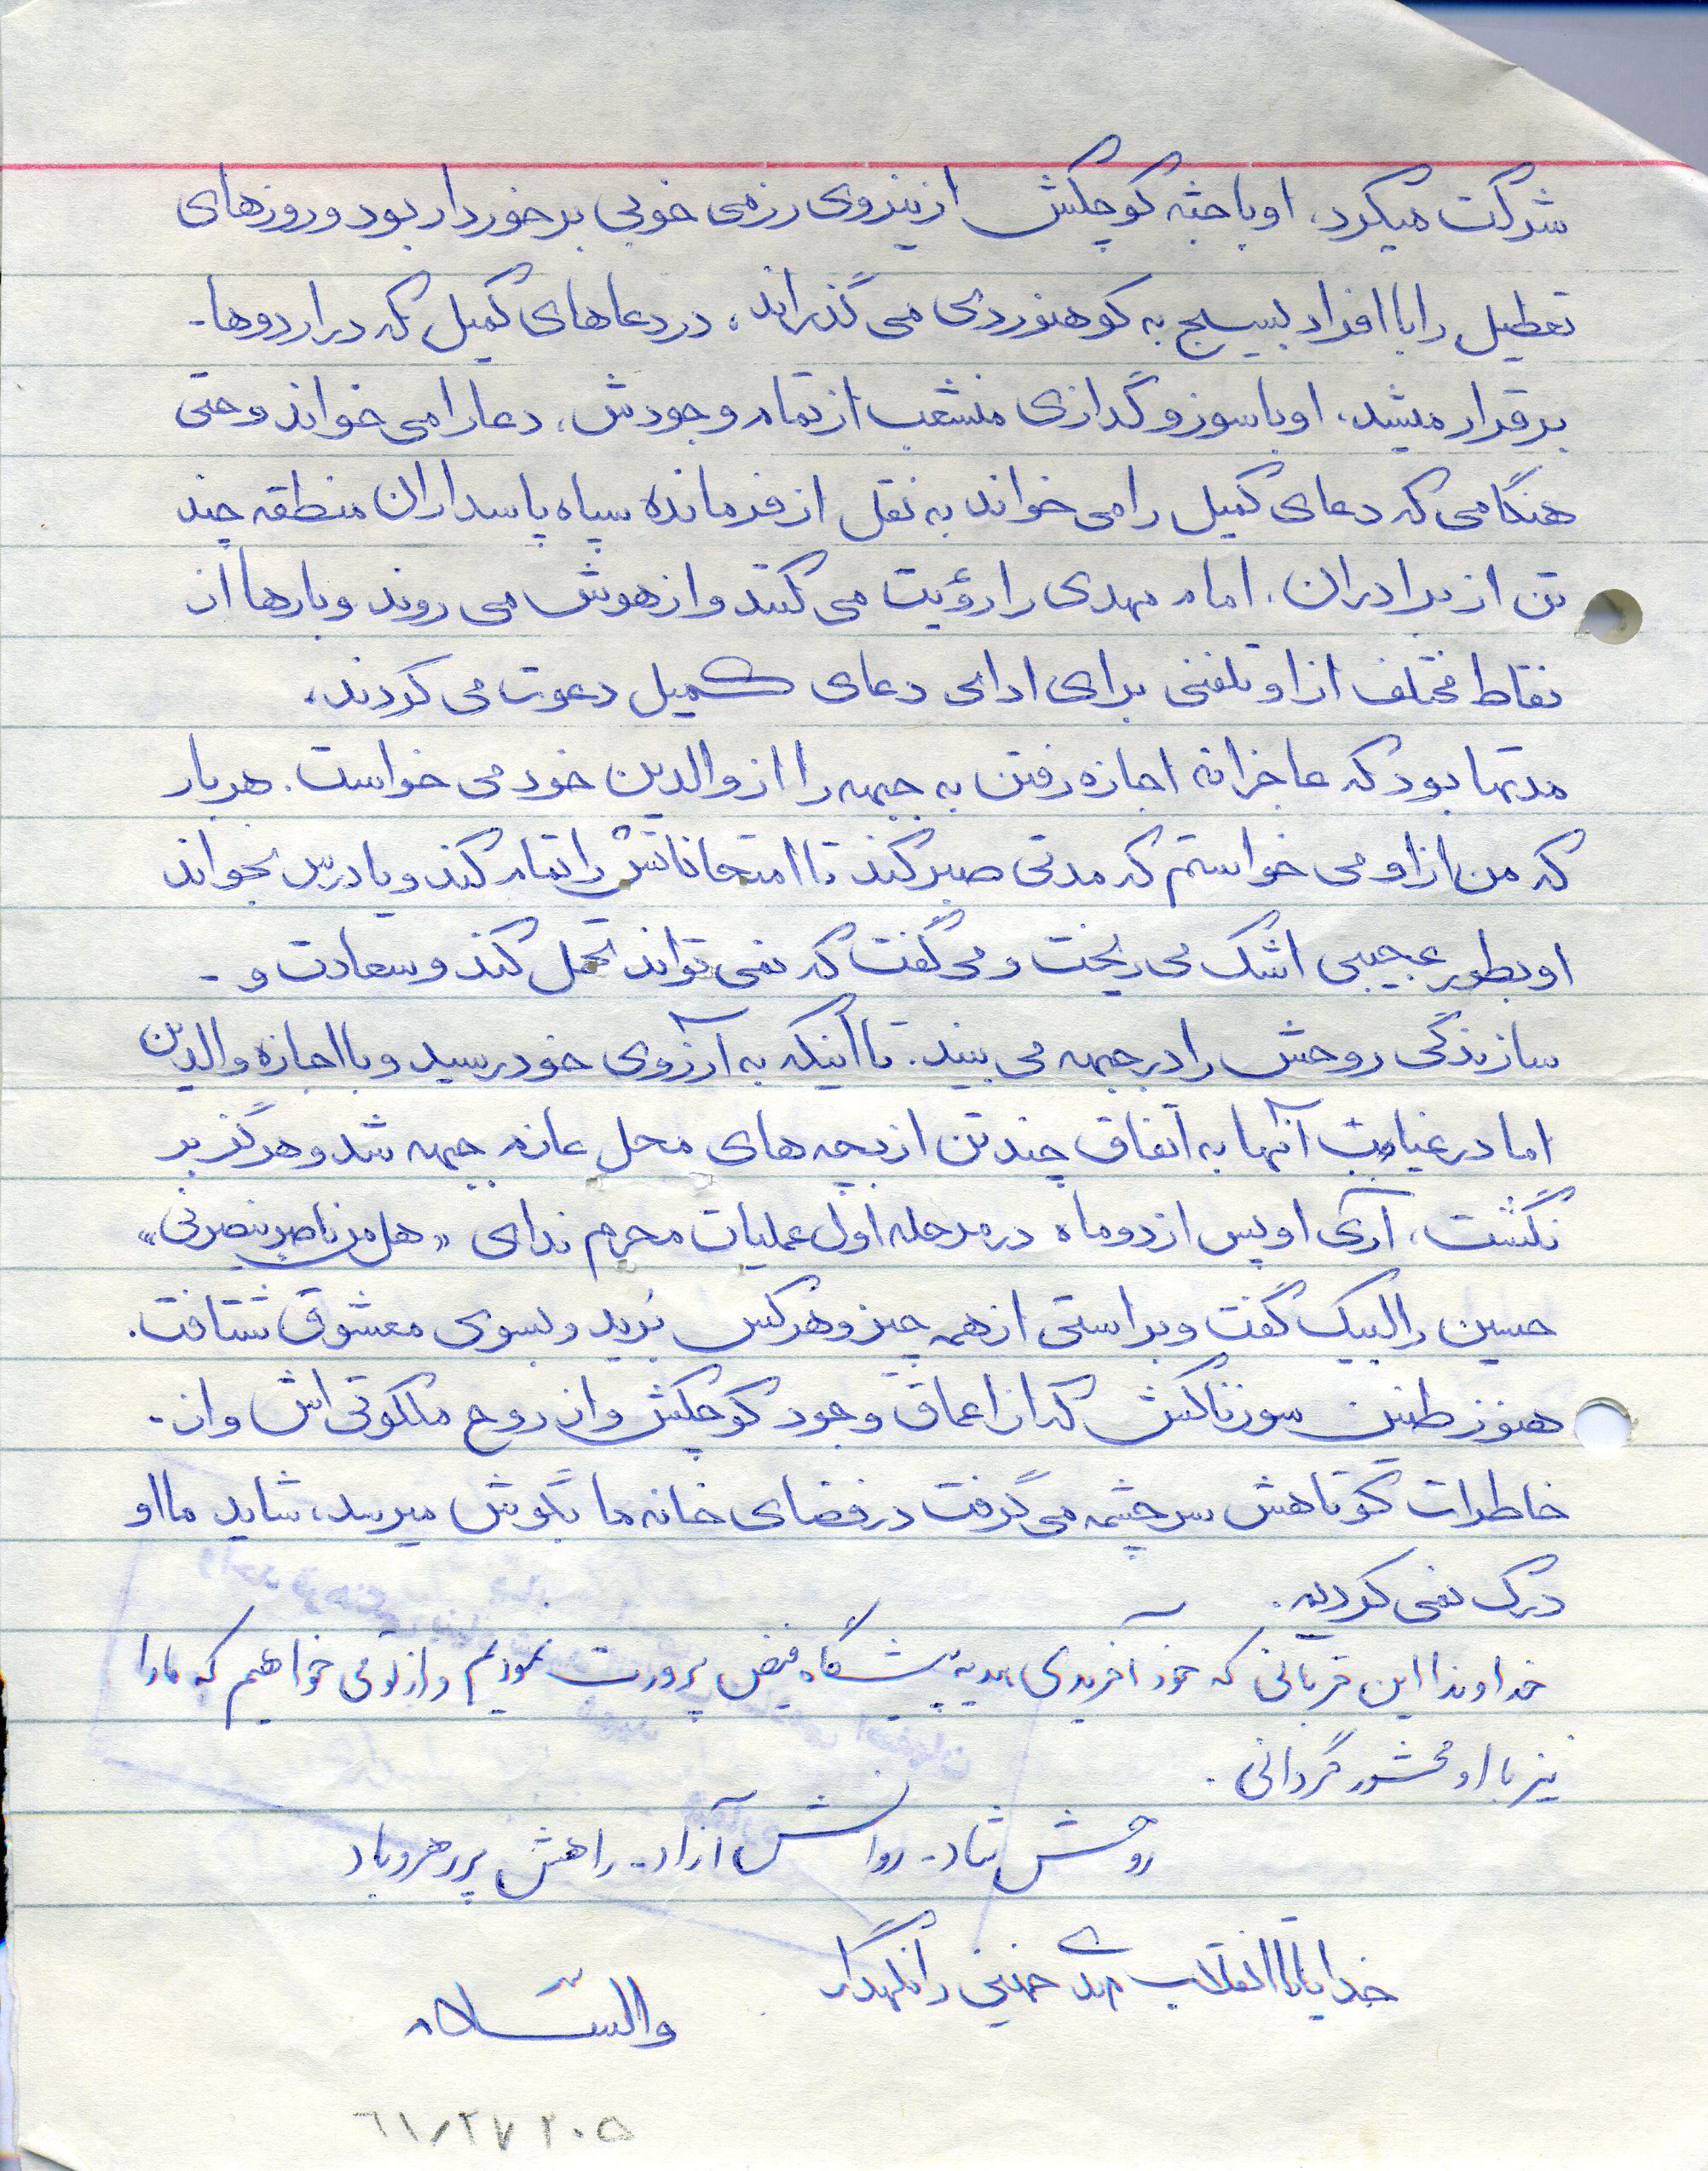 شرکت میکرد، او با جثه کوچکش از نیروی رزمی خوبی برخوردار بود و روزهای
تعطیل را با افراد بسیج به کوهنوردی می گذراند، در دعاهای کمیل که در اردوها -
برقرار میشد، او با سوز و گدازی منشعب از تمام وجودش، دعا را می خواند و حتی
هنگامی که دعای کمیل را می خواند به نقل از فرمانده سپاه پاسداران منطقه چند
تن از برادران، امام مهدی را رؤیت می کنند و از هوش می روند و بارها از
نقاط مختلف از او تلفنی برای ادای دعای کمیل دعوت می کردند،
مدتها بود که عاجزانه اجازه رفتن به جبهه را از والدین خود می خواست. هر بار
که من از او می خواستم که مدتی صبر کند تا امتحاناتش را تمام کند و یا درس بخواند
او بطور عجیبی اشک می ریخت و می گفت که نمی تواند تحمل کند و سعادت و -
سازندگی روحش را در جبهه می بیند. تا اینکه به آرزوی خود رسید و با اجازه والدین
اما در غیابت آنها به اتفاق چند تن از بچه های محل عازم جبهه شد و هرگز بر
نگشت، آری او پس از دو ماه در مرحله اول عملیات محرم ندای «هل من ناصر ینصرنی»
حسین را لبیک گفت و براستی از همه چیز و هرکس بُرید و بسوی معشوق شتافت.
هنوز طنین سوزناکش که از اعماق وجود کوچکش و از روح ملکوتی اش و از -
خاطرات کوتاهش سرچشمه می گرفت در فضای خانه ما بگوش میرسد، شاید ما او
درک نمی کردیم.
خداوندا این قربانی که خود آفریدی، هدیه پیشگاه فیض پرورت نمودیم و از تو می خواهیم که ما را
نیز با او محشور گردانی.
روحش شاد - روانش آزاد - راهش پر رهرو باد
خدایا تا انقلاب مهدی خمینی را نگهدار
والسّلام
۶۱/۲۷ ۲۰۵